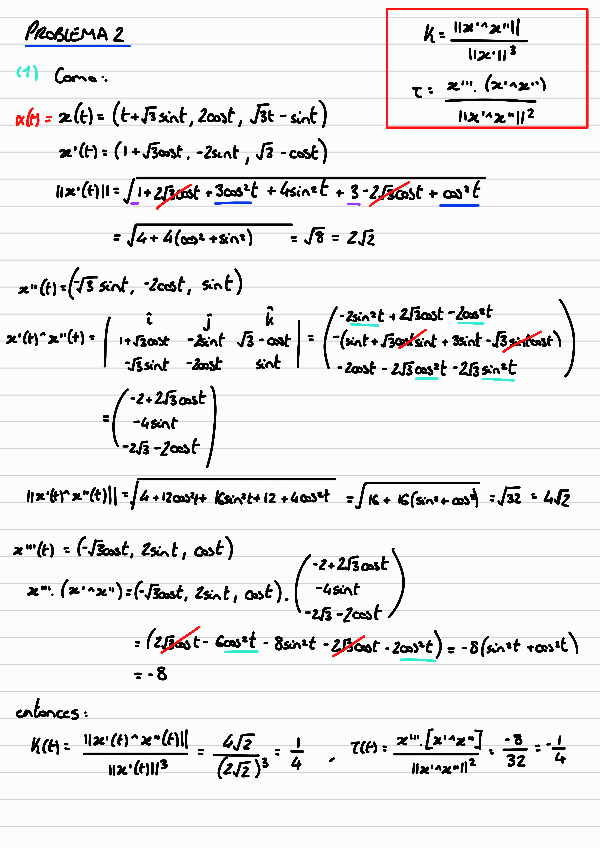 PROBLEMA 2
K = ||x'^x''|| / ||x'||³
τ = x'''. (x'^x'') / ||x'^x''||²
(1) Como:
α(t) = x(t) = (t+√3 sint, 2cost, √3t - sint)
x'(t) = (1+√3cost, -2sint, √3 - cost)
||x'(t)|| = √(1 + 2√3cost + 3cos²t + 4sin²t + 3 - 2√3cost + cos²t)
= √(4 + 4(cos² + sin²)) = √8 = 2√2
x''(t) = (-√3 sint, -2cost, sint)
x'(t)^x''(t) = | î ĵ k̂ | = ( -2sin²t + 2√3cost - 2cos²t )
| 1+√3cost -2sint √3 - cost | ( -(sint + √3cost sint + 3sint - √3 sintcost) )
| -√3sint -2cost sint | ( -2cost - 2√3cos²t - 2√3sin²t )
= ( -2+2√3cost
-4sint
-2√3 - 2cost )
||x'(t)^x''(t)|| = √(4+12cos²t + 16sin²t + 12 + 4cos²t) = √(16 + 16(sin² + cos²)) = √32 = 4√2
x'''(t) = (-√3cost, 2sint, cost)
x'''. (x'^x'') = (-√3cost, 2sint, cost) . ( -2+2√3cost
-4sint
-2√3 - 2cost )
= (2√3cost - 6cos²t - 8sin²t - 2√3cost - 2cos²t) = -8(sin²t + cos²t)
= -8
entonces:
K(t) = ||x'(t)^x''(t)|| / ||x'(t)||³ = 4√2 / (2√2)³ = 1/4 , τ(t) = x'''.[x'^x''] / ||x'^x''||² = -8/32 = -1/4